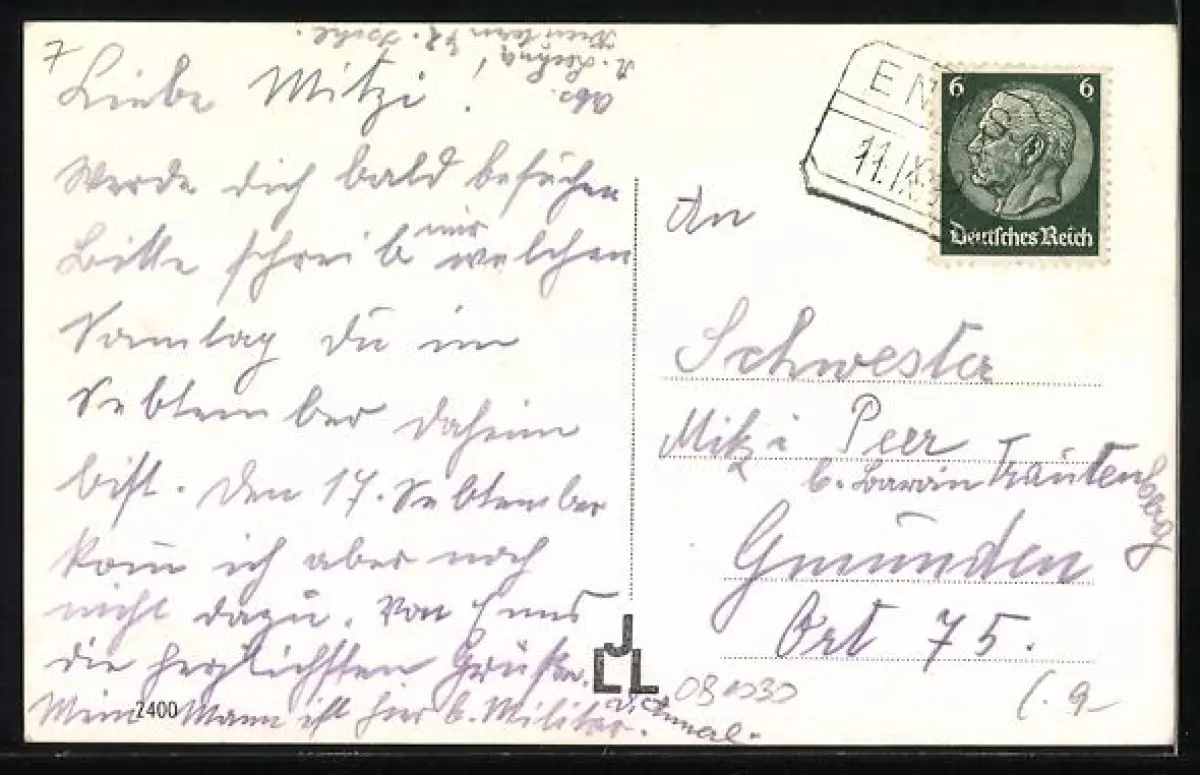 7
Liebe Mitzi!
Werde dich bald besuchen
Bitte schreib mir welchen
Samstag du im
Sebtember daheim
bist. Den 17. Sebtember
kom̄ ich aber noch
nicht dazu. Von Enns
die herzlichsten Grüße.
Mein Mann ist hier b. Militär.
Abs.
EN
11.IX.
6 6
Deutsches Reich
An
Schwester
Mitzi Peer
b. Baronin Trautenberg
Gmunden
Ort 75.
JLL
Z400